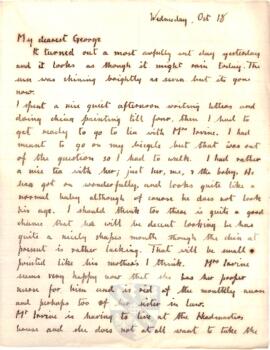 Wednesday, Oct 18
My dearest George
It turned out a most awfully wet day yesterday
and it looks as though it might rain today. The
sun was shining brightly at seven but its gone
now.
I spent a nice quiet afternoon writing letters and
doing china painting till four, then I had to
get ready to go to tea with Mrs Irvine. I had
meant to go on my bicycle but that was out
of the question so I had to walk. I had rather
a nice tea with her; just her, me, & the baby. He
has got on wonderfully, and looks quite like a
normal baby although of course he does not look
his age. I should think too there is quite a good
chance that he will be decent looking he has
quite a nicely shaped mouth though the chin at
present is rather lacking. That will be small &
pointed like his mother's I think. Mrs Irvine
seems very happy now that she has her proper
nurse for him and is rid of the monthly nurse
and perhaps too of sister in law.
Mr Irvine is having to live at the Headmasters
house and she does not at all want to take the